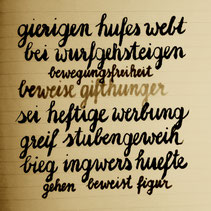 gierigen hufes webt
bei wurfgehsteigen
bewegungsfreiheit
beweise gifthunger
sei heftige werbung
greif stubengeweih
bieg ingwers huefte
gehen beweist figur